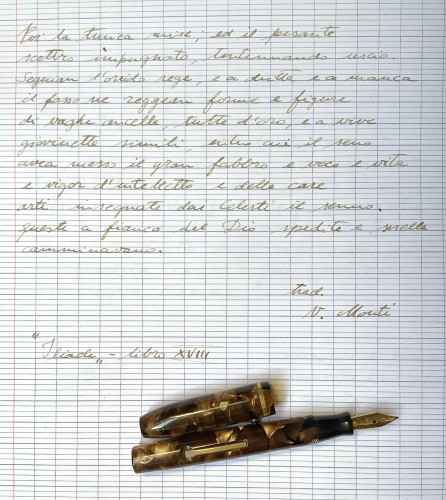 Poi la tunica mise; ed il pesante
scettro impugnato, tentennando uscìo.
Seguian l'orrido rege, e a dritta e a manca
il passo ne reggean forme e figure
di vaghe ancelle, tutte d'oro, e a vive
giovinette simili, entro cui il seno
avea messo il gran fabbro e voce e vita
e vigor d'intelletto e delle care
arti insegnate dai Celesti il senno.
queste a fianco del Dio spedite e snelle
camminavano.
trad.
V. Monti
"Iliade„ - libro XVIII